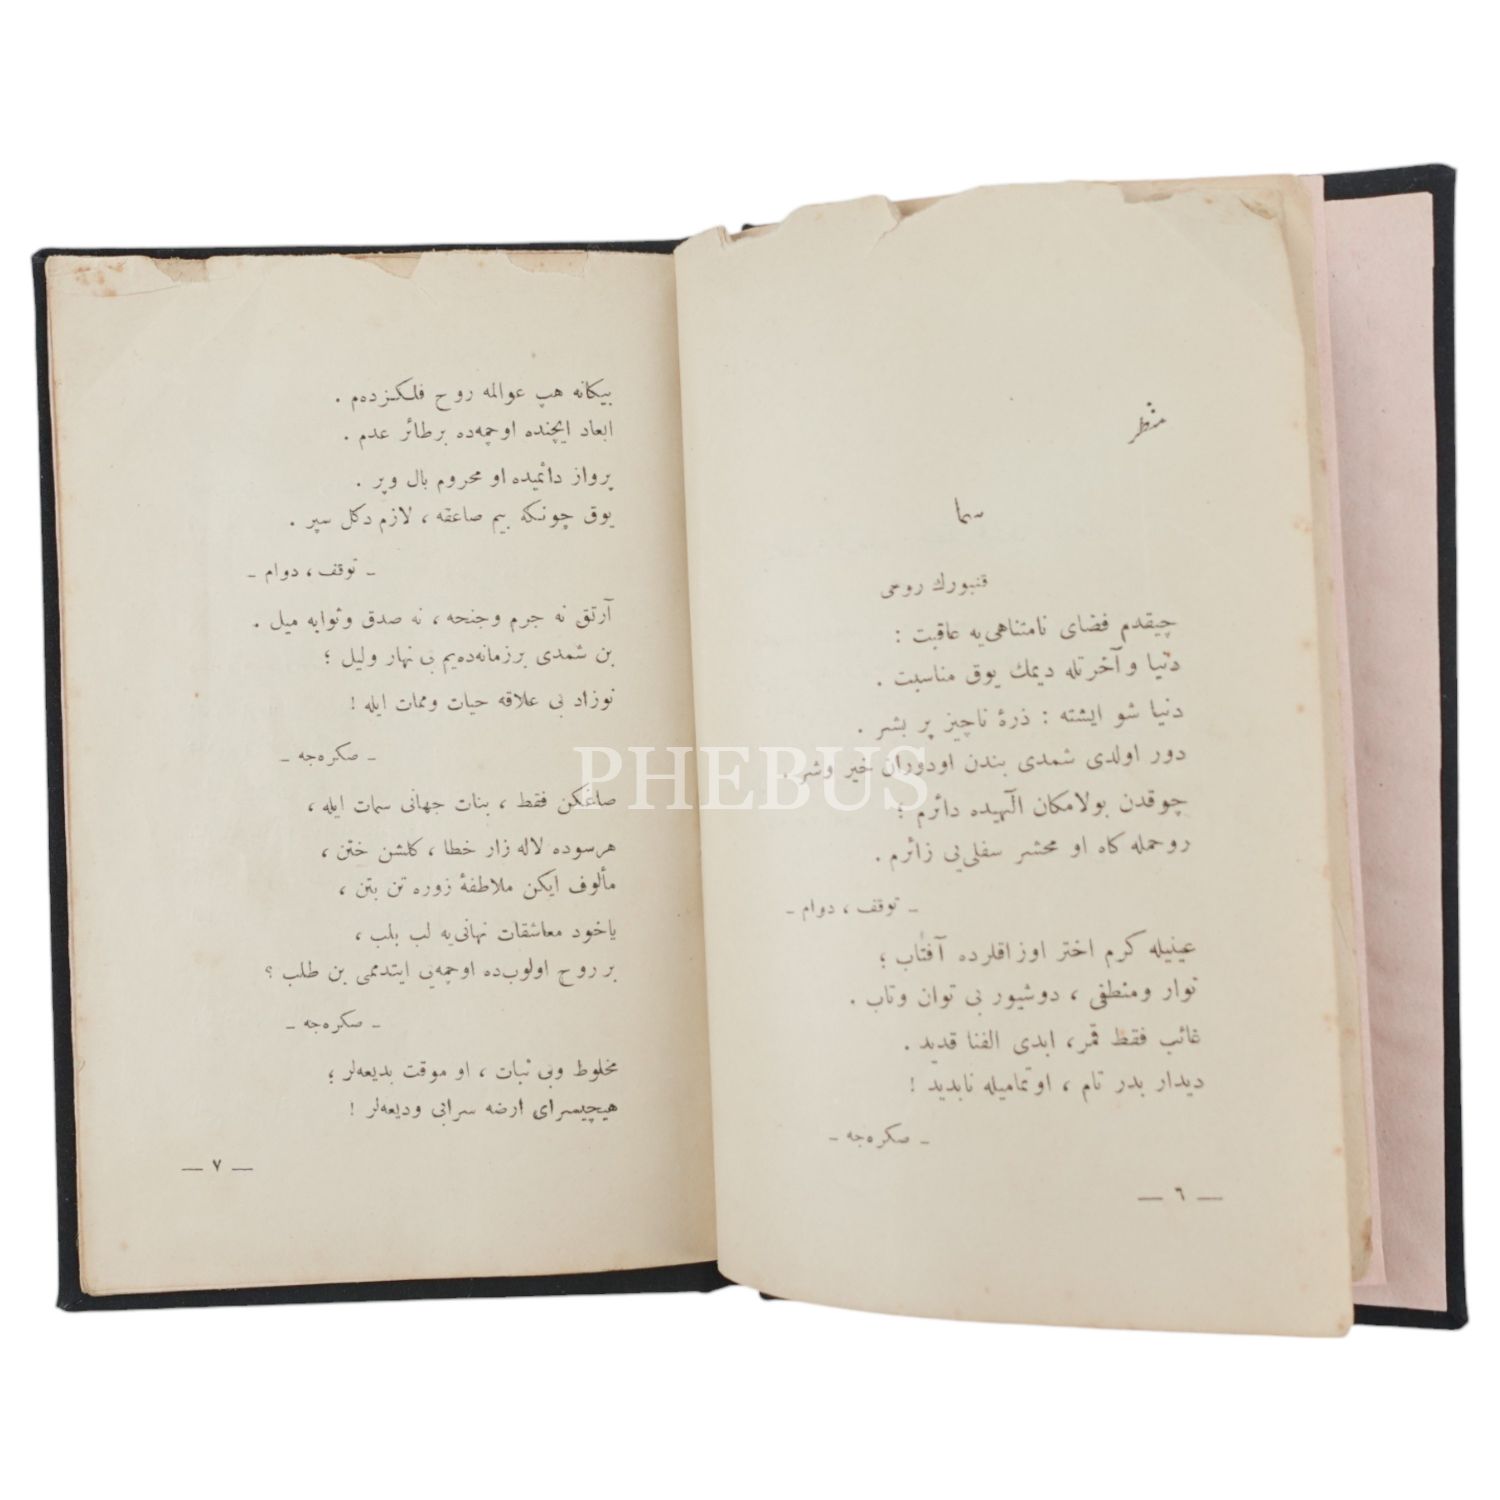 منظر
سما
قنبورك روحى
چيقدم فضاى نامتناهى‌يه عاقبت :
دنيا و آخرتله ديمك يوق مناسبت .
دنيا شو ايشته : ذرۀ ناچيز پر بشر .
دور اولدى شمدى بندن اودوران خير وشر .
چوقدن بولامكان الٓهيده دائرم ؛
روحمله كاه او محشر سفلى‌يى زائرم .
ـ توقف ، دوام ـ
عينيله كرم اختر اوزاقلرده آفتاب ؛
توار ومنطفى ، دوشيور بى توان وتاب .
غائب فقط قمر، ابدى الفنا قديد .
ديدار بدر تام ، اوتماميله نابديد !
ـ صكره‌جه ـ
— ٦ —
بيكانه هپ عوالمه روح فلكزده‌م .
ابعاد ايچنده اوچمه‌ده برطائر عدم .
پرواز دائميده او محروم بال وپر .
يوق چونكه بيم صاعقه ، لازم دكل سپر .
ـ توقف ، دوام ـ
آرتق نه جرم وجنحه ، نه صدق وثوابه ميل .
بن شمدى برزمانه‌ده‌يم بى نهار وليل ؛
نوزاد بى علاقه حيات وممات ايله !
ـ صكره‌جه ـ
صاغكن فقط ، بنات جهانى سمات ايله ،
هرسوده لاله زار خطا ، كلشن ختن ،
مألوف ايكن ملاطفۀ زوره تن بتن ،
ياخود معاشقات نهانى‌يه لب بلب ،
برروح اولوب‌ده اوچمه‌يى ايتدممى بن طلب ؟
ـ صكره‌جه ـ
مخلوط وبى ثبات ، او موقت بديعه‌لر ؛
هيچيسراى ارضه سرابى وديعه‌لر !
— ٧ —
PHEBUS